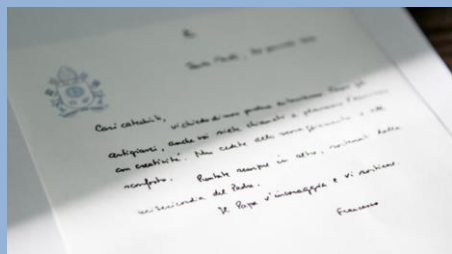 Cari catechisti, vi chiedo di non perdere
artigiani, anche voi siete chiamati a plasmare l'annuncio
con creatività. Non cedete allo scoraggiamento e allo
sconforto. Puntate sempre in alto, sostenuti dalla
misericordia del Padre.
Il Papa v'incoraggia e vi sostiene.
Francesco